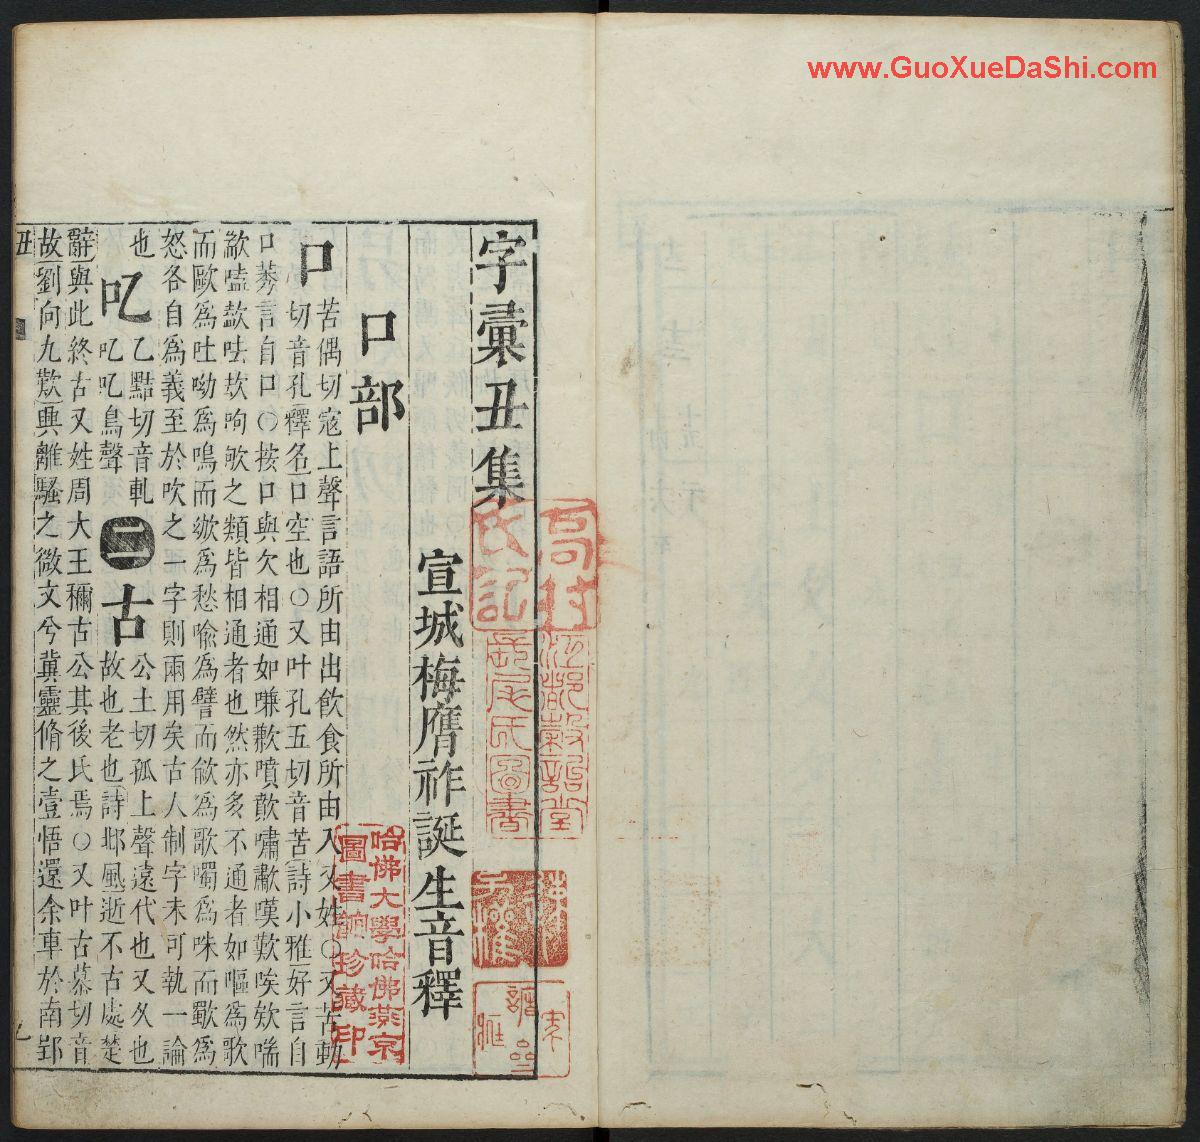 www.GuoXueDaShi.com
字彙丑集
宣城梅膺祚誕生音釋
口部
口
苦偶切寇上聲言語所由出飲食所由入又姓○又苦動
切音孔釋名口空也○又叶孔五切音苦詩小雅好言自
口莠言自口○按口與欠相通如嗛歉噴歕嘯歗嘆歎唉欸喘
歂嗑欱呿欪呴欨之類皆相通者也然亦多不通者如嘔爲歌
而歐爲吐呦爲鳴而欻爲愁喩爲譬而歈爲歌噣爲咮而歜爲
怒各自爲義至於吹之一字則兩用矣古人制字未可執一論
也
吃
乙點切音軋
吃吃鳥聲
二
古
公土切孤上聲遠代也又久也
故也老也詩邶風逝不古處楚
辭與此終古又姓周大王稱古公其後氏焉○又叶古慕切音
故劉向九歎興離騷之微文兮冀靈脩之壹悟還余車於南郢
丑
哈佛大學哈佛燕京
圖書館珍藏印